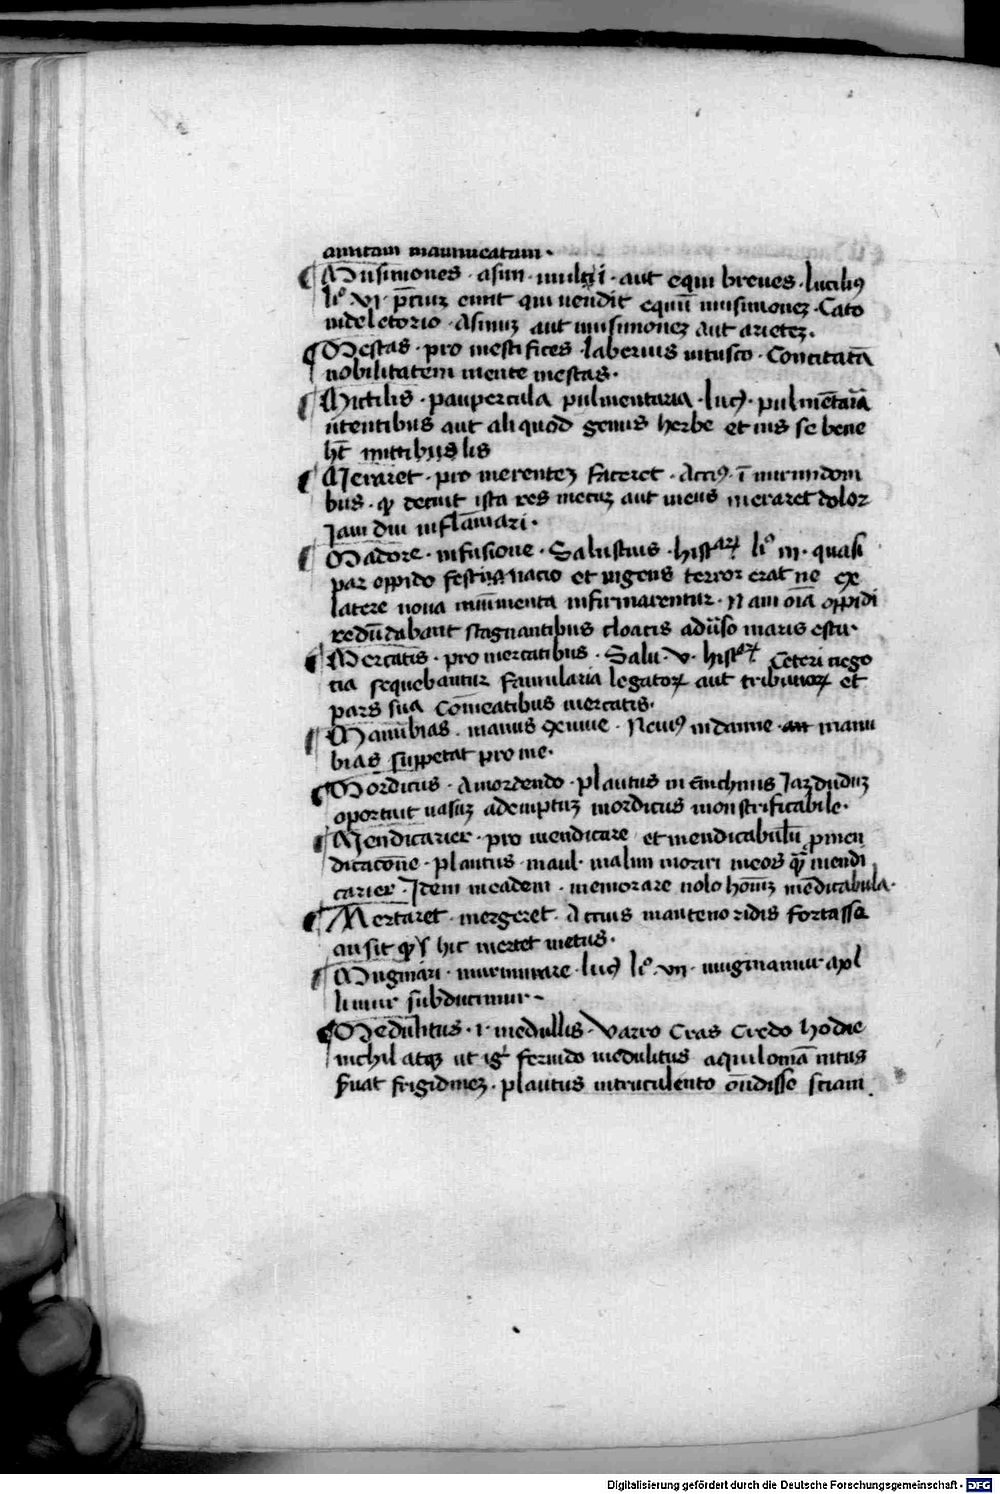 amitam mannucatam·
¶ Musimones · asini · muli · aut equi breves · lucilius
liº VI · p̄cium emit qui uendit equū musimonez · Cato
indeletorio · Asinuz aut musimonez aut arietez ·
¶ Mestas · pro mestifices · laberius intusco · Concitatā
nobilitatem mente mestas ·
¶ Mictilis · paupercula pulmentaria · lucꝰ · pulmētaria
utentibus aut aliquod genus herbe et ius se bene
hꝫ mittibus lis
¶ Meraret · pro merentez faceret · Accius · ī
bus · ꝙ decuit ista res mecuz aut meus meraret dolor
Jam diu inflāmari ·
¶ Madore · infusione · Salustius · histaꝝ liº III · quasi
par oppido festinacio et ingens terror erat ne ex
latere noua munimenta infirmarentur · Nam oīa oppidi
redūdabant stagnantibus cloacis adūso maris estu ·
¶ Mercatis · pro mercatibus · Salu · V · histaꝝ Ceteri nego
tia sequebantur familiaria legatoꝝ aut tribunoꝝ et
pars sua Comeatibus mercatis ·
¶ Manūbias · manus · Neuiꝰ indanne · manu
bias suppetat pro me ·
¶ Mordicus · Amordendo · plautus in Jazduduz
oportuit uasuz ademptuz mordicus monstrificabile ·
¶ Mendicarier · pro mendicare et mendicabulū ꝓ men
dicacōne · plautus · maul · malim moriri meos ꝙ̄ mendi
carier · Idem ineadem · memorare nolo hoīuz mēdicabula ·
¶ Mertaret · mergeret · Accius inantenoridis fortasse
an sit ꝙ hic mertet metus ·
¶ Muginari · murmurare · lucꝰ liº · VII · muginamur mol
limur subducimur ~
¶ Medulitus · i · medullis · Varro Cras Credo hodie
nichil atqꝫ ut iḡ feruido medulitus aquilomā intus
ẜuat frigidinez · plautus intruculento oūdisse sciam
Digitalisierung gefördert durch die Deutsche Forschungsgemeinschaft - DFG